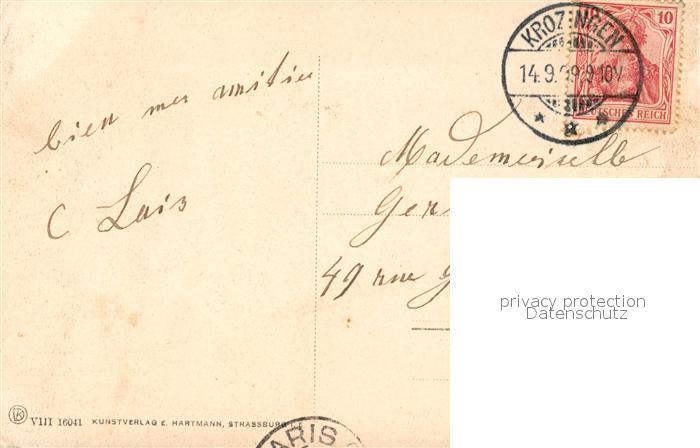 KROZINGEN
14.9.09.9 10V
10
DEUTSCHES REICH
bien mes amitiés
C Lais
Mademoiselle
Ger
49 rue
privacy protection
Datenschutz
VIII 16041 KUNSTVERLAG E. HARTMANN, STRASSBURG i.E
PARIS